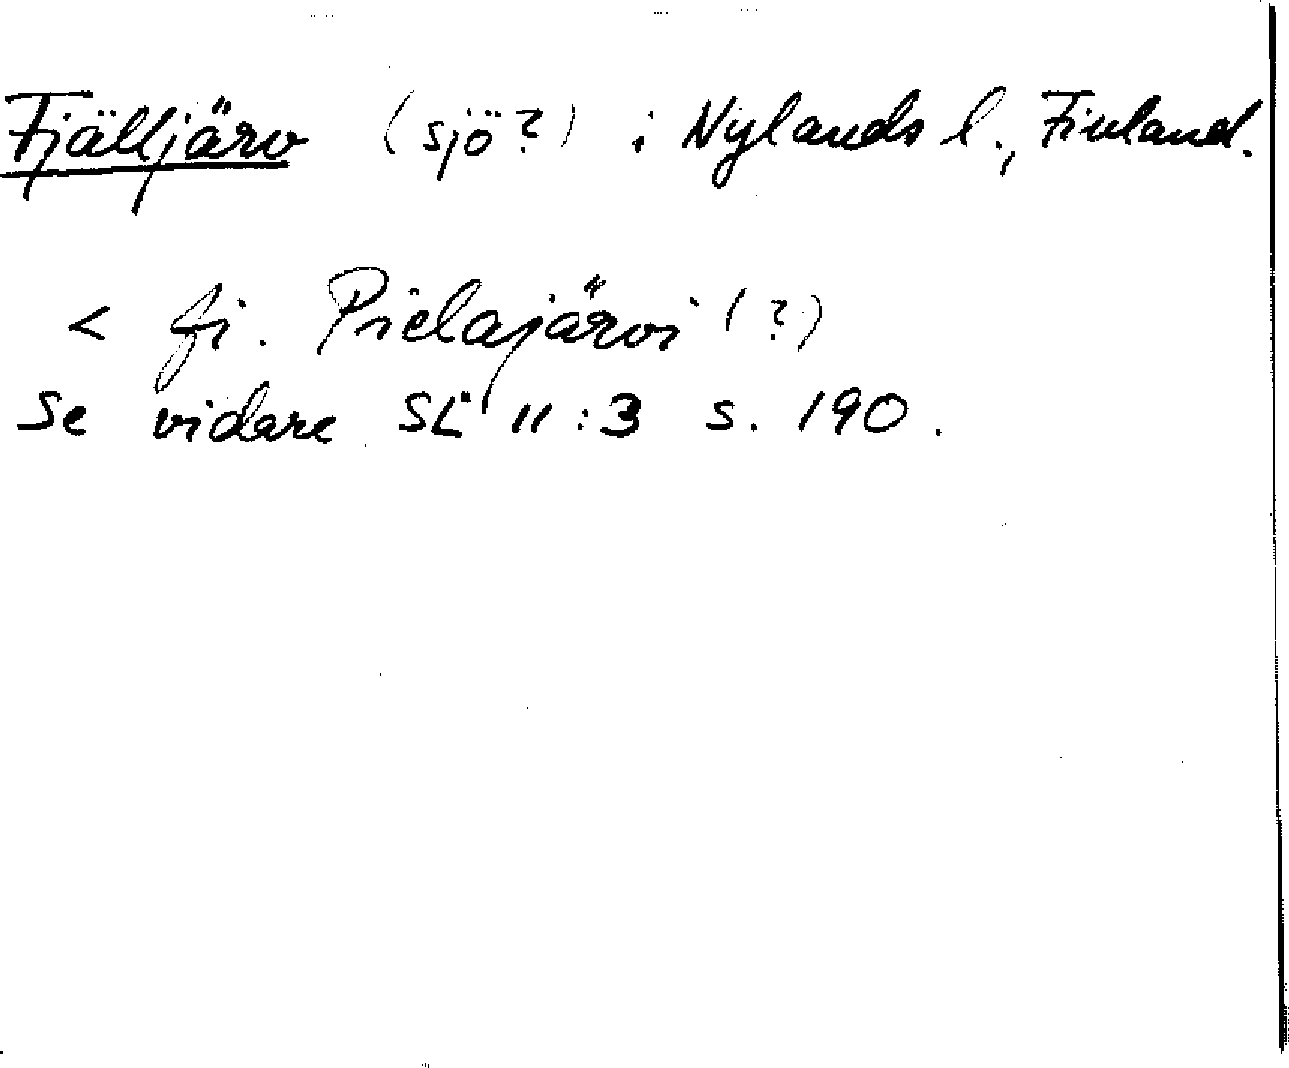 Fjälljärv (sjö?) i Nylands l., Finland.
< fi. Pielajärvi (?)
Se vidare SL 11:3 s. 190.